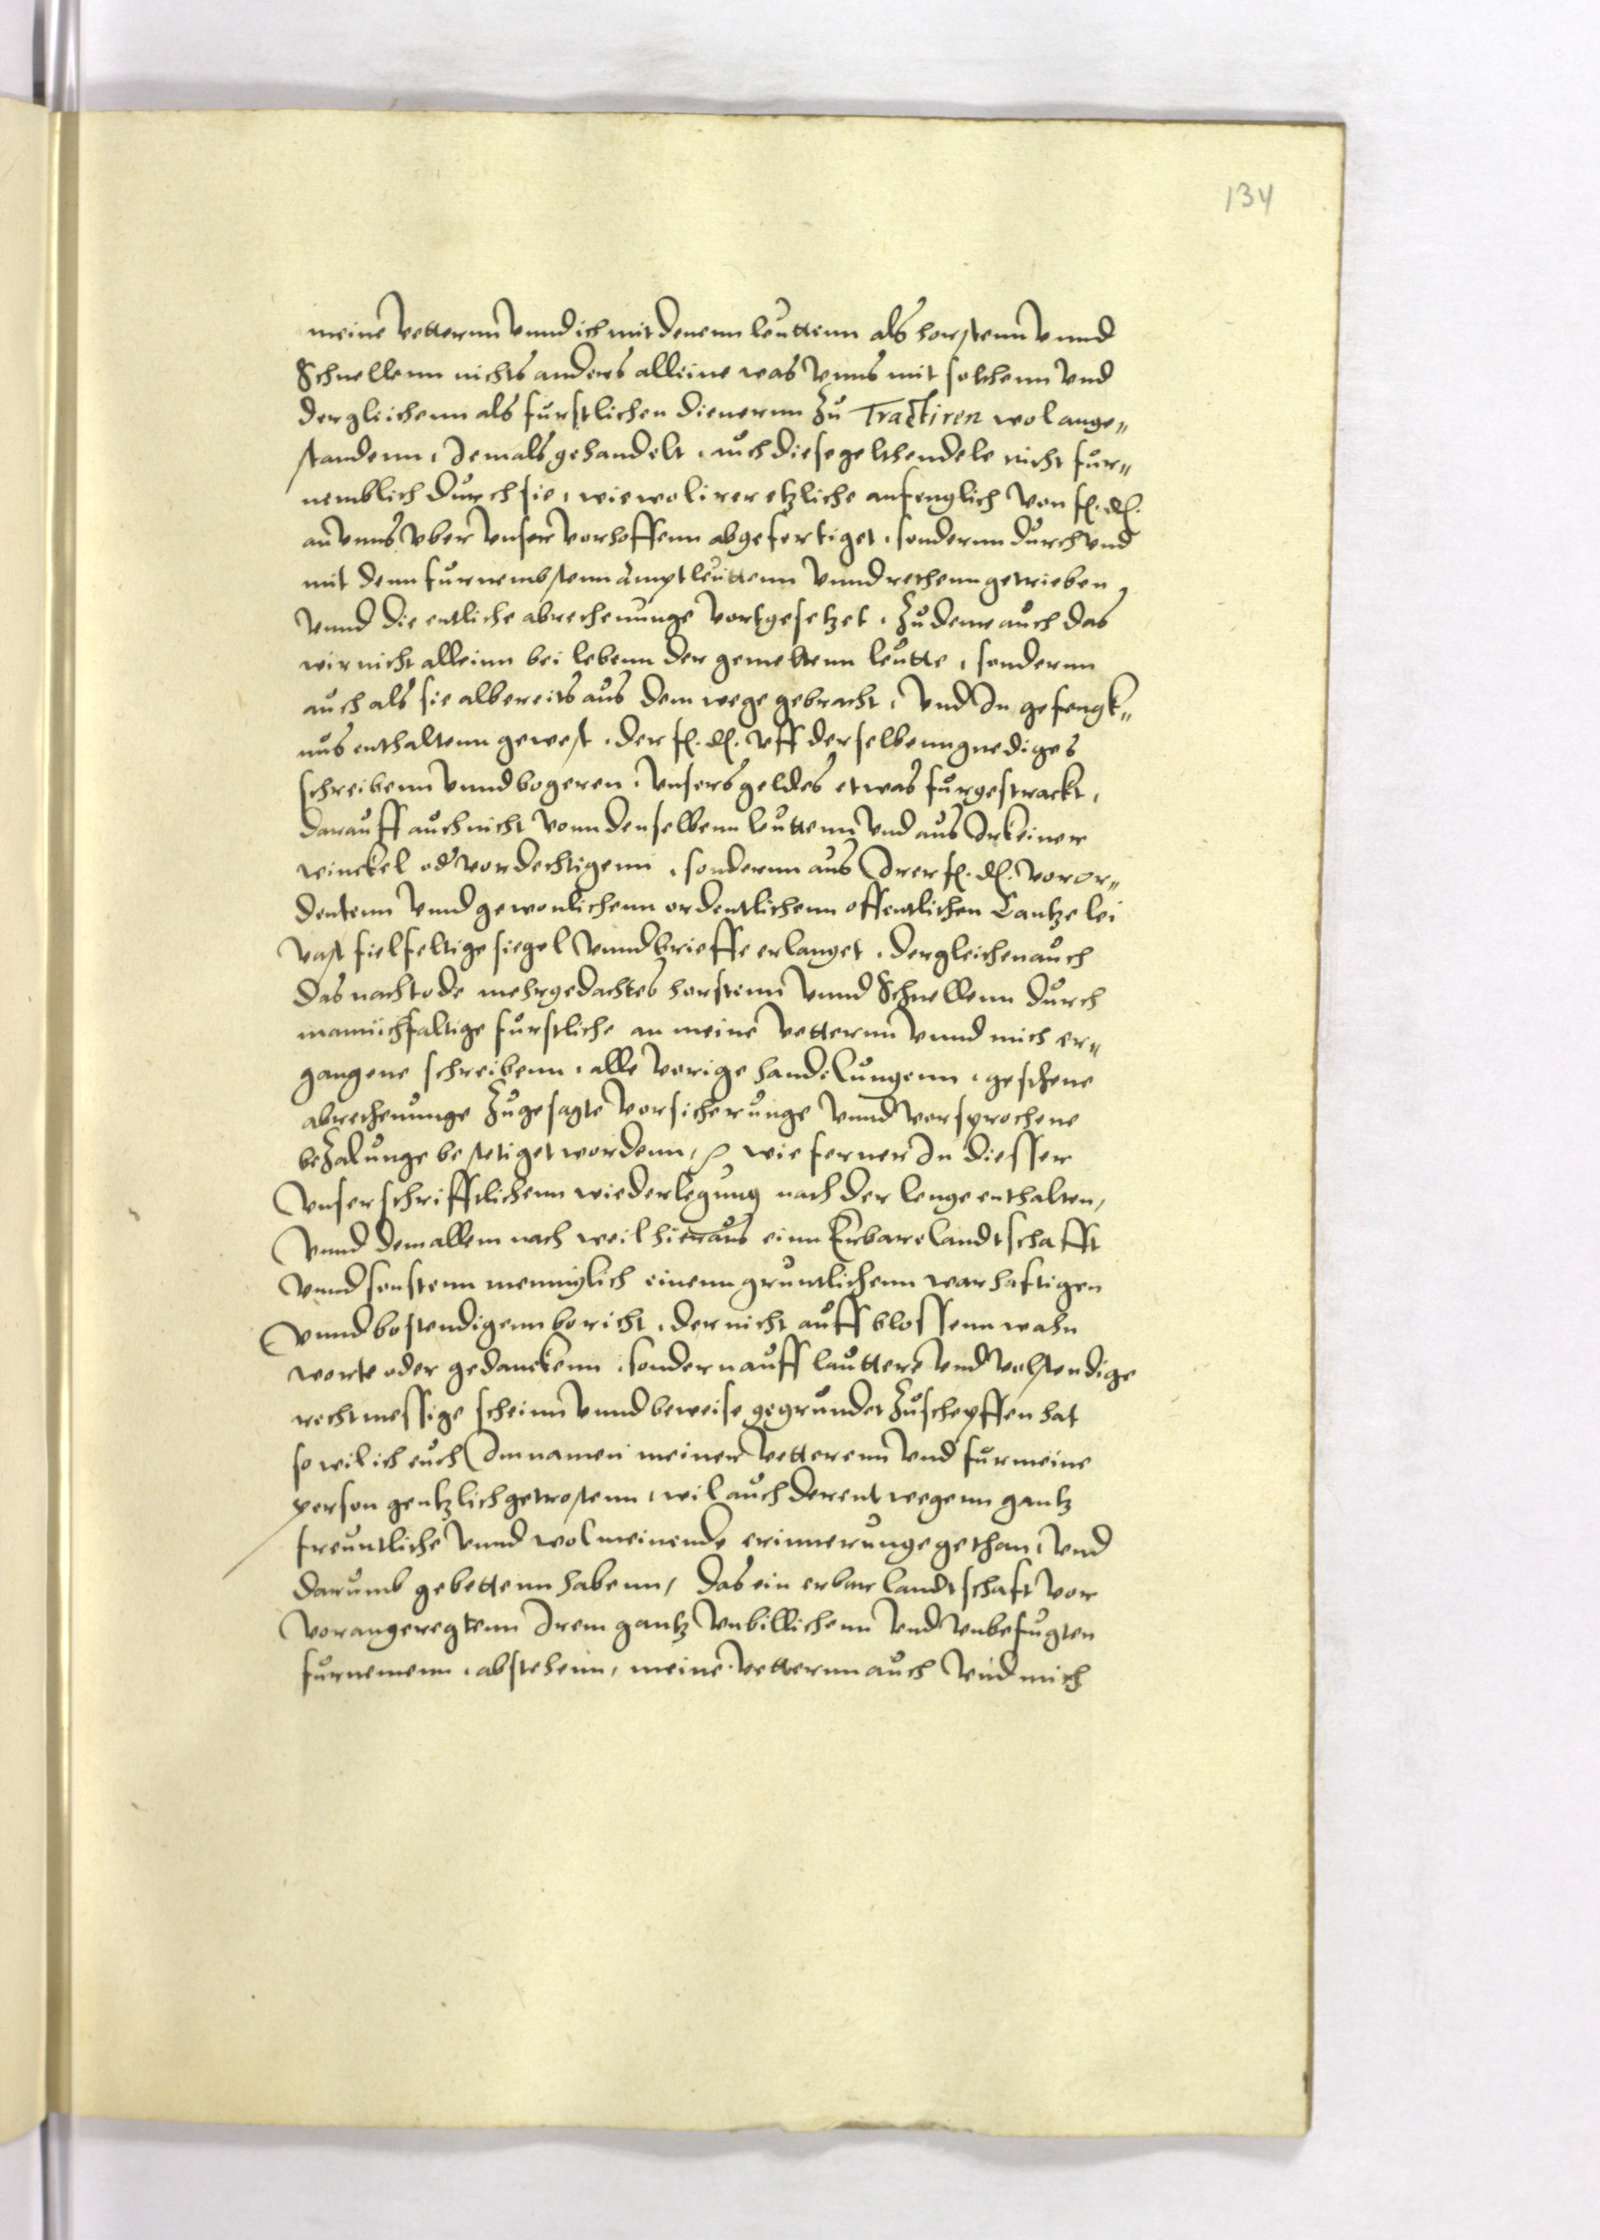 134
meine Vetternn vnnd ich mit denenn leuttenn als horstenn vnnd
Schnellenn nichts anders alleine was vnns mit solchenn vnd
dergleichenn als furstlichen dienernn zu Tractiren wol ange„
standenn, Jemals gehandelt, auch diese gelthendele nicht fur„
nemblich durch sie, wiewol irer etzliche anfenglich von f. d.
an vnns vber vnser vorhoffenn abgefertiget, sondernn durch vnd
mit denn furnembstenn amptleuttenn vnnd rethenn getrieben
vnnd die entliche abrechenunge vortgesetzet, Zu deme auch das
wir nicht alleinn bei lebenn der gemeltenn leutte, sondernn
auch als sie albereits aus dem wege gebracht, vnd In gefengk„
nus enthaltenn gewest, der f. d. vff derselbenn gnediges
schreibenn vnnd begeren, vnsers geldes etwas furgestrackt,
darauff auch nicht vonn denselbenn leuttenn vnd aus Irkeiner
winckel oder vordechtigenn, sondernn aus Irer f. d. voror„
dentenn vnnd gewonlichenn ordentlichenn offentlichen Cantzelei
vast fielfeltige siegel vnnd brieffe erlanget, dergleichen auch
das nach tode mehrgedachtes horstenn vnnd Schnellenn durch
mannichfaltige furstliche an meine Vetternn vnnd mich er„
gangene schreibenn, alle vorige handelungenn, geschene
abrechenunge zugesagte vorsicherunge vnnd vorsprochene
bezalunge bestetiget wordenn, wie ferner In diesser
vnser schrifftlichenn wiederlegung nach der lenge enthalten,
vnnd dem allem nach weil hieraus einn Erbare landtschafft
vnnd sonstenn menniglich einenn gruntlichenn warhaftigen
vnnd bestendigenn bericht, der nicht auff blossenn wahn
worte oder gedanckenn, sondern auff lauttere vnd volstendige
rechtmessige scheinn vnnd beweise gegrundet zuschepffen hat
so wil ich euch Im namen meiner Vetterenn vnd fur meine
person gentzlich getrostenn, wil auch derentwegenn gantz
freuntliche vnnd wolmeinende erinnerunge gethan, vnd
darumb gebettenn habenn, das ein erbar landtschaft vor
vorangeregtenn Irem gantz vnbillichenn vnd vnbefugten
furnemenn, abstehenn, meine Vetternn auch vnd mich